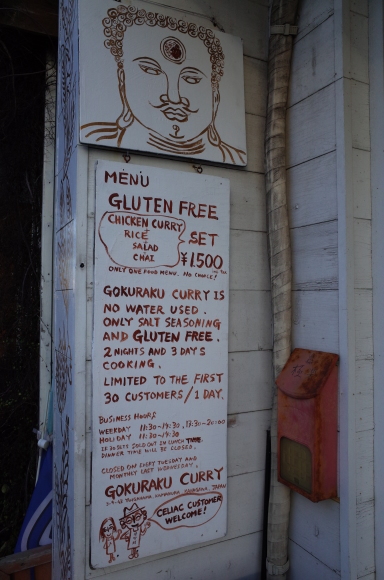 MENU
GLUTEN FREE
CHICKEN CURRY
RICE
SALAD
CHAI
SET
¥1,500
ONLY ONE FOOD MENU. NO CHOICE!
GOKURAKU CURRY IS
NO WATER USED.
ONLY SALT SEASONING
AND GLUTEN FREE.
2 NIGHTS AND 3 DAYS
COOKING.
LIMITED TO THE FIRST
30 CUSTOMERS/1 DAY.
BUSINESS HOURS
WEEKDAY 11:30~14:30,
HOLIDAY 11:30~14:30.
IF 30 SETS SOLD OUT IN LUNCH
DINNER TIME WILL BE CLOSED.
CLOSED ON EVERY TUESDAY AND
MONTHLY LAST WEDNESDAY.
GOKURAKU CURRY
KAMAKURA, KANAGAWA, JAPAN
CELIAC CUSTOMER
WELCOME!